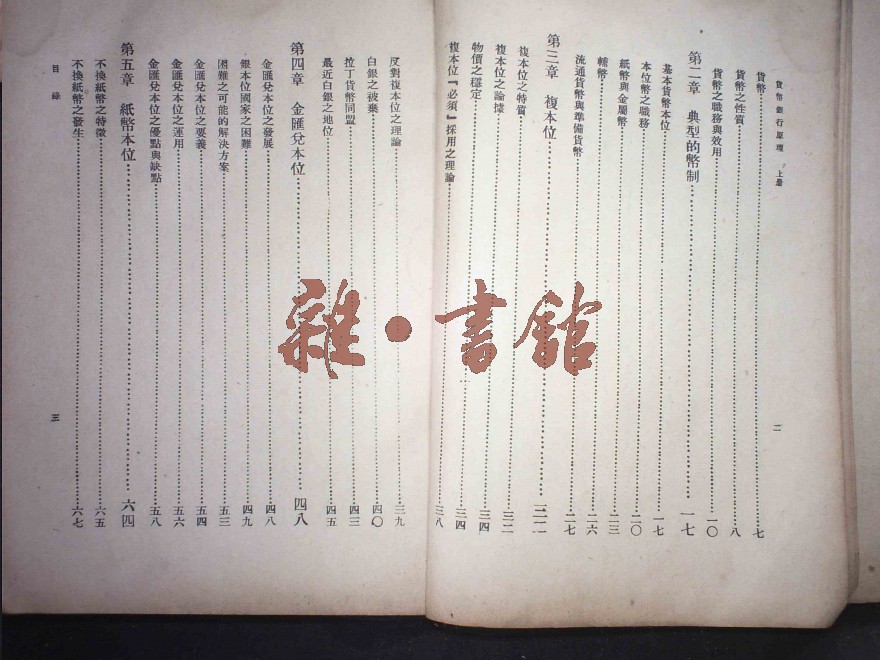 貨幣銀行原理 上册
二
貨幣……七
貨幣之性質……八
貨幣之職務與效用……一〇
第二章 典型的幣制……一七
基本貨幣本位……一七
本位幣之職務……二〇
紙幣與金屬幣……二三
輔幣……二六
流通貨幣與準備貨幣……二七
第三章 複本位……三二
複本位之特質……三二
複本位之論據……三四
物價之穩定……三四
複本位『必須』採用之理論……三八
反對複本位之理論……三九
白銀之被棄……四〇
拉丁貨幣同盟……四三
最近白銀之地位……四五
第四章 金匯兌本位……四八
金匯兌本位之發展……四八
銀本位國家之困難……四九
困難之可能的解決方案……五三
金匯兌本位之要義……五四
金匯兌本位之運用……五六
金匯兌本位之優點與缺點……五八
第五章 紙幣本位……六四
不換紙幣之特徵……六五
不換紙幣之發生……六七
目錄
三
雜·書館